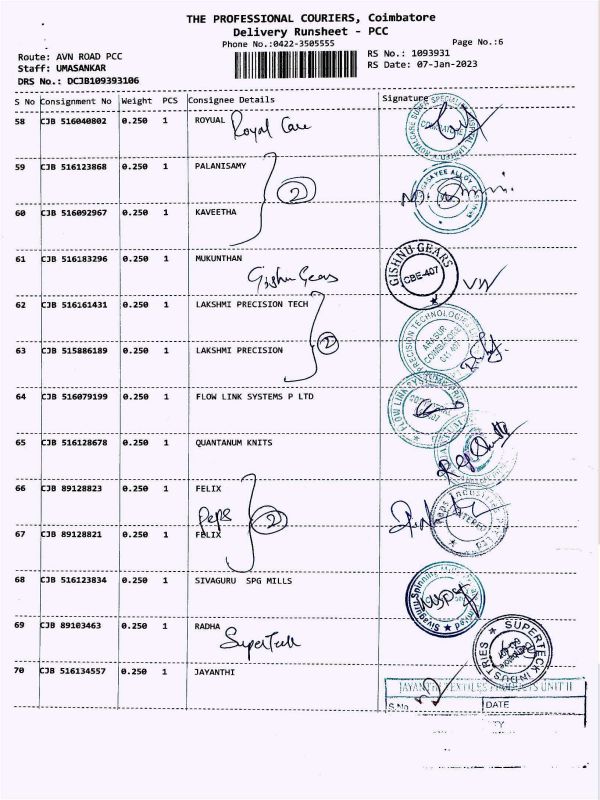 THE PROFESSIONAL COURIERS, Coimbatore
Delivery Runsheet - PCC
Phone No.:0422-3505555
Page No.:6
Route: AVN ROAD PCC
RS No.: 1093931
Staff: UMASANKAR
RS Date: 07-Jan-2023
DRS No.: DCJB109393106
S No Consignment No Weight PCS Consignee Details Signature
58 CJB 516040802 0.250 1 ROYUAL
Royal Care
COIMBATORE
59 CJB 516123868 0.250 1 PALANISAMY
2
60 CJB 516092967 0.250 1 KAVEETHA
61 CJB 516183296 0.250 1 MUKUNTHAN
Gishnu Gears
GISHNU GEARS
CBE-407
62 CJB 516161431 0.250 1 LAKSHMI PRECISION TECH
2
PRECISION TECHNOLOGIES
ARASUR
COIMBATORE
641 407
63 CJB 515886189 0.250 1 LAKSHMI PRECISION
64 CJB 516079199 0.250 1 FLOW LINK SYSTEMS P LTD
FLOW LINK SYSTEMS
65 CJB 516128678 0.250 1 QUANTANUM KNITS
66 CJB 89128823 0.250 1 FELIX
Peps
2
67 CJB 89128821 0.250 1 FELIX
68 CJB 516123834 0.250 1 SIVAGURU SPG MILLS
Sivaguru Spinning
69 CJB 89103463 0.250 1 RADHA
SuperTech
SUPERTECK INDUSTRIES
70 CJB 516134557 0.250 1 JAYANTHI
JAYANTHI TEXTILES PRODUCTS UNIT II
S.No
DATE